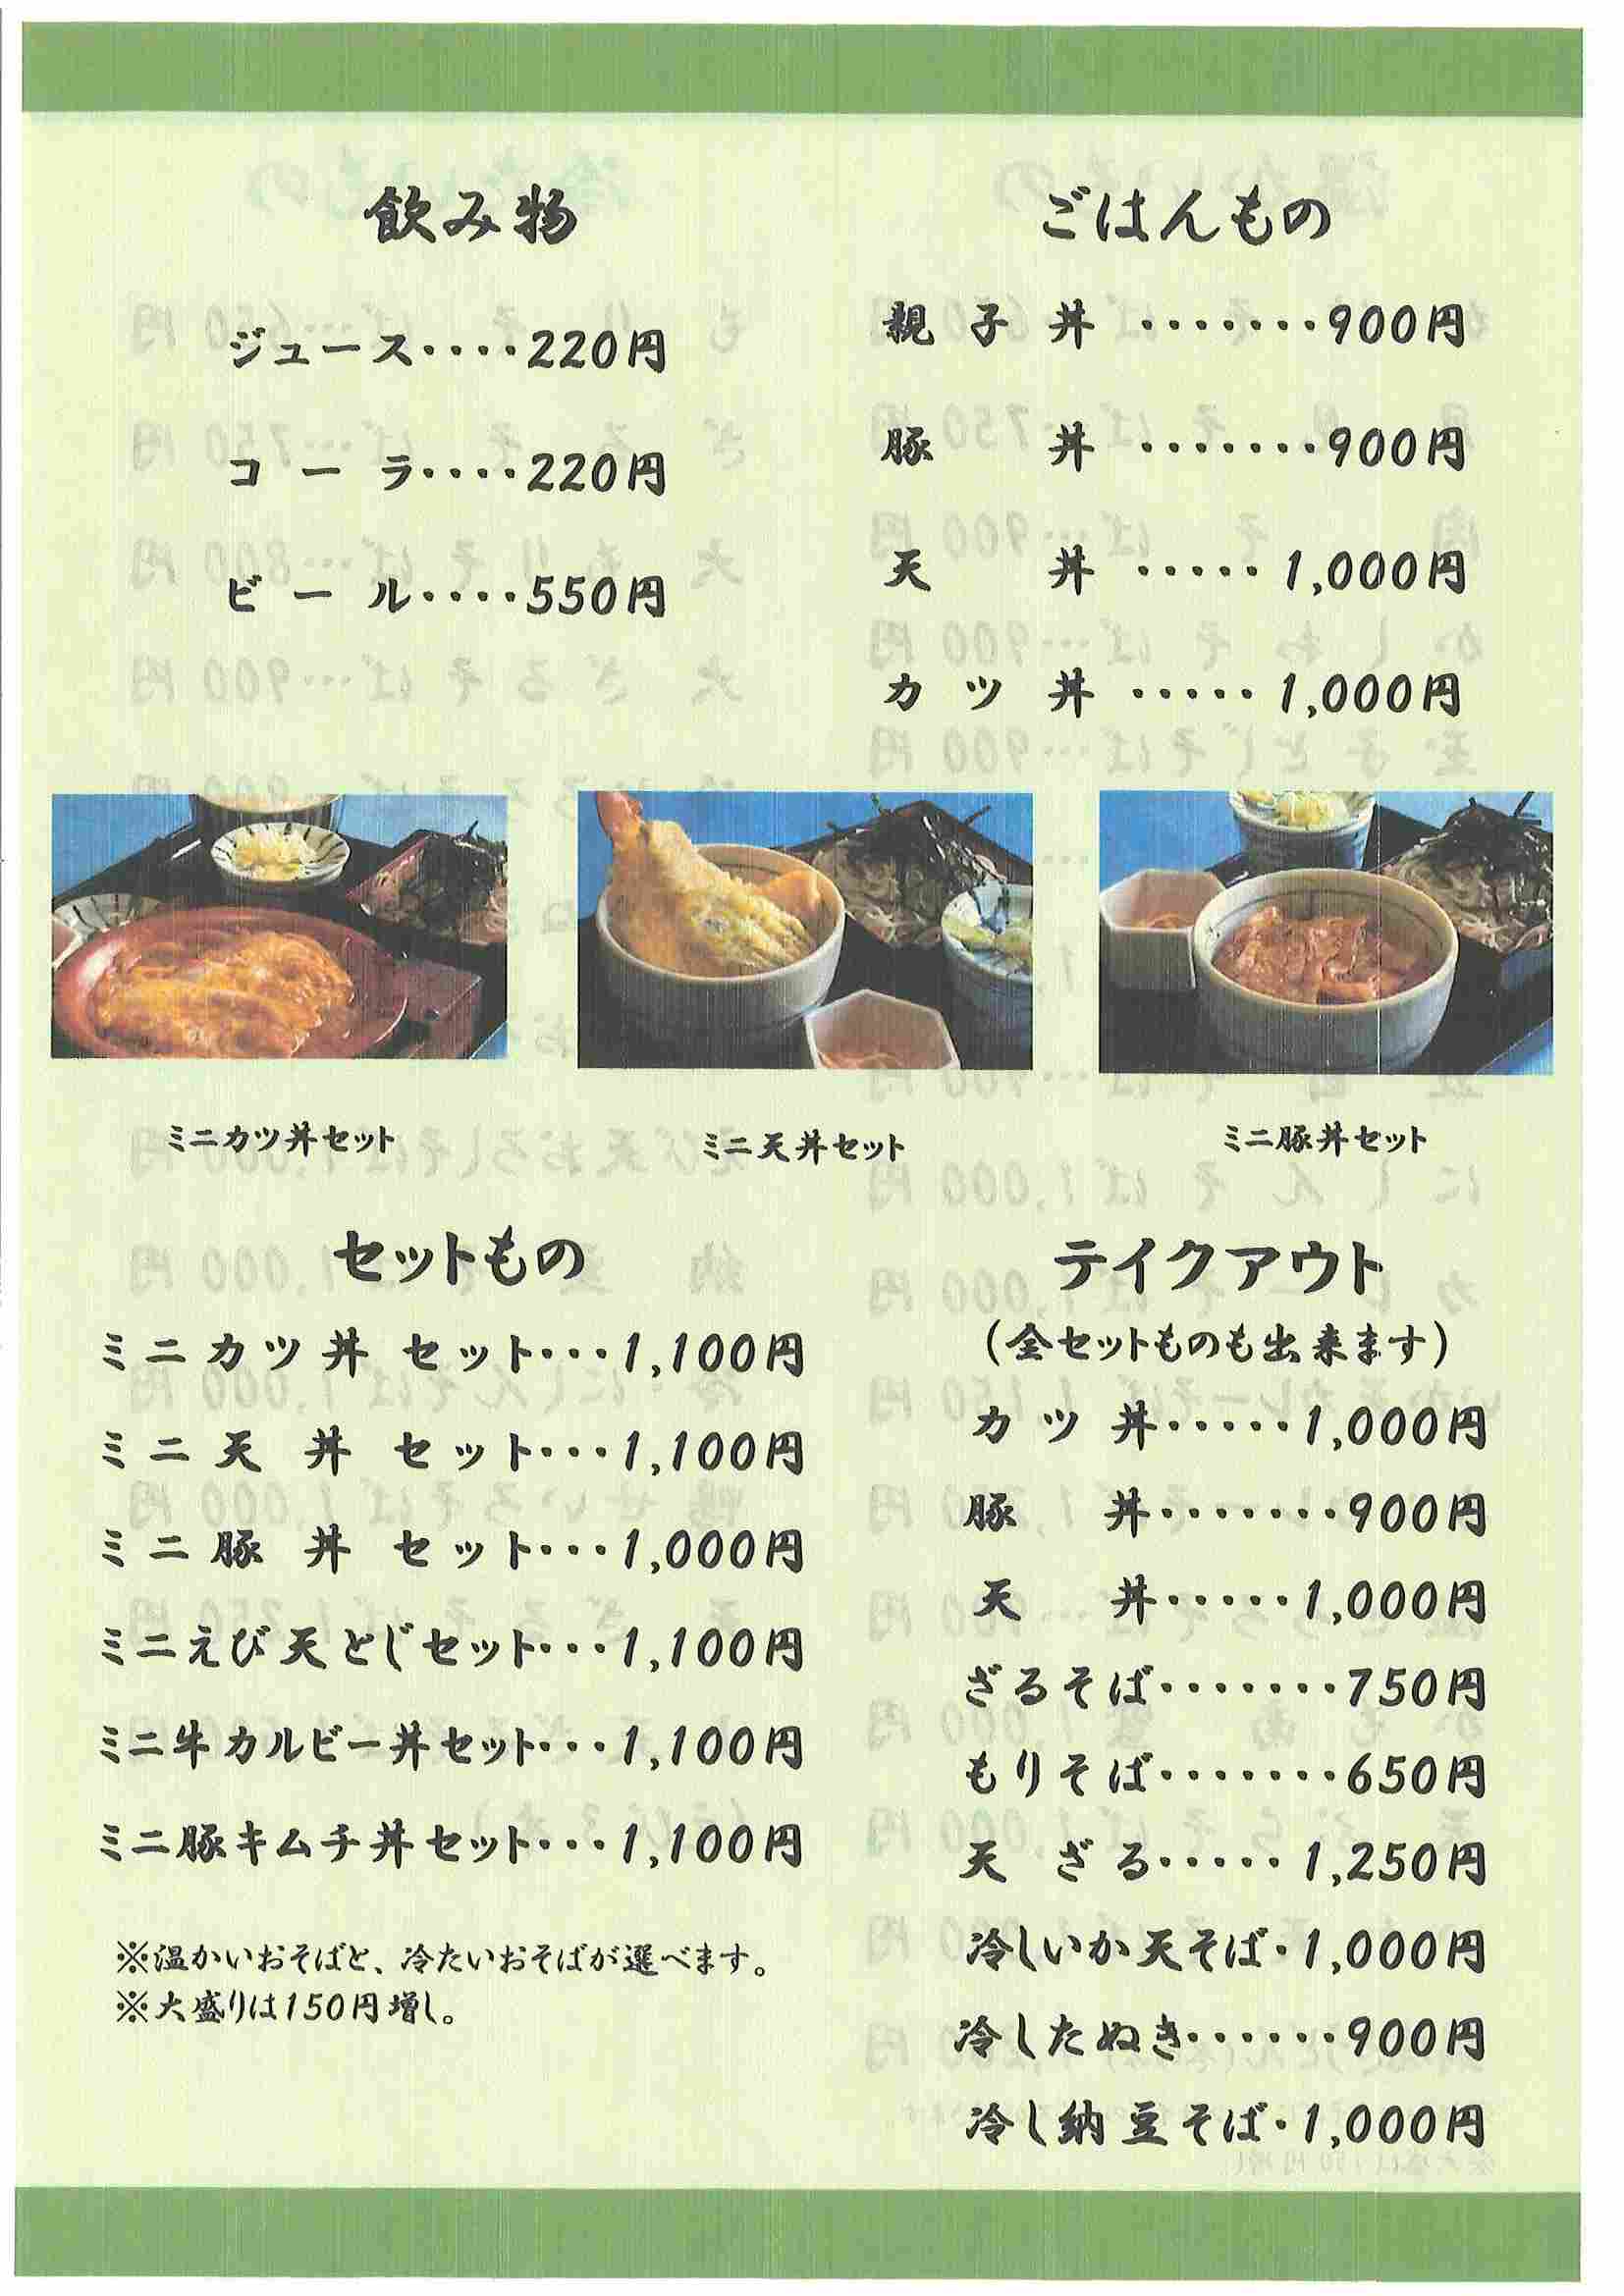 飲み物
ジュース····220円
コーラ····220円
ビール····550円
ごはんもの
親子丼·······900円
豚丼·······900円
天丼·····1,000円
カツ丼·····1,000円
ミニカツ丼セット
ミニ天丼セット
ミニ豚丼セット
セットもの
ミニカツ丼 セット···1,100円
ミニ天丼 セット···1,100円
ミニ豚丼 セット···1,000円
ミニえび天とじセット···1,100円
ミニ牛カルビー丼セット···1,100円
ミニ豚キムチ丼セット···1,100円
※温かいおそばと、冷たいおそばが選べます。
※大盛りは150円増し。
テイクアウト
(全セットものも出来ます)
カツ丼·····1,000円
豚丼·······900円
天丼·····1,000円
ざるそば·······750円
もりそば·······650円
天ざる·····1,250円
冷しいか天そば·1,000円
冷したぬき······900円
冷し納豆そば·1,000円